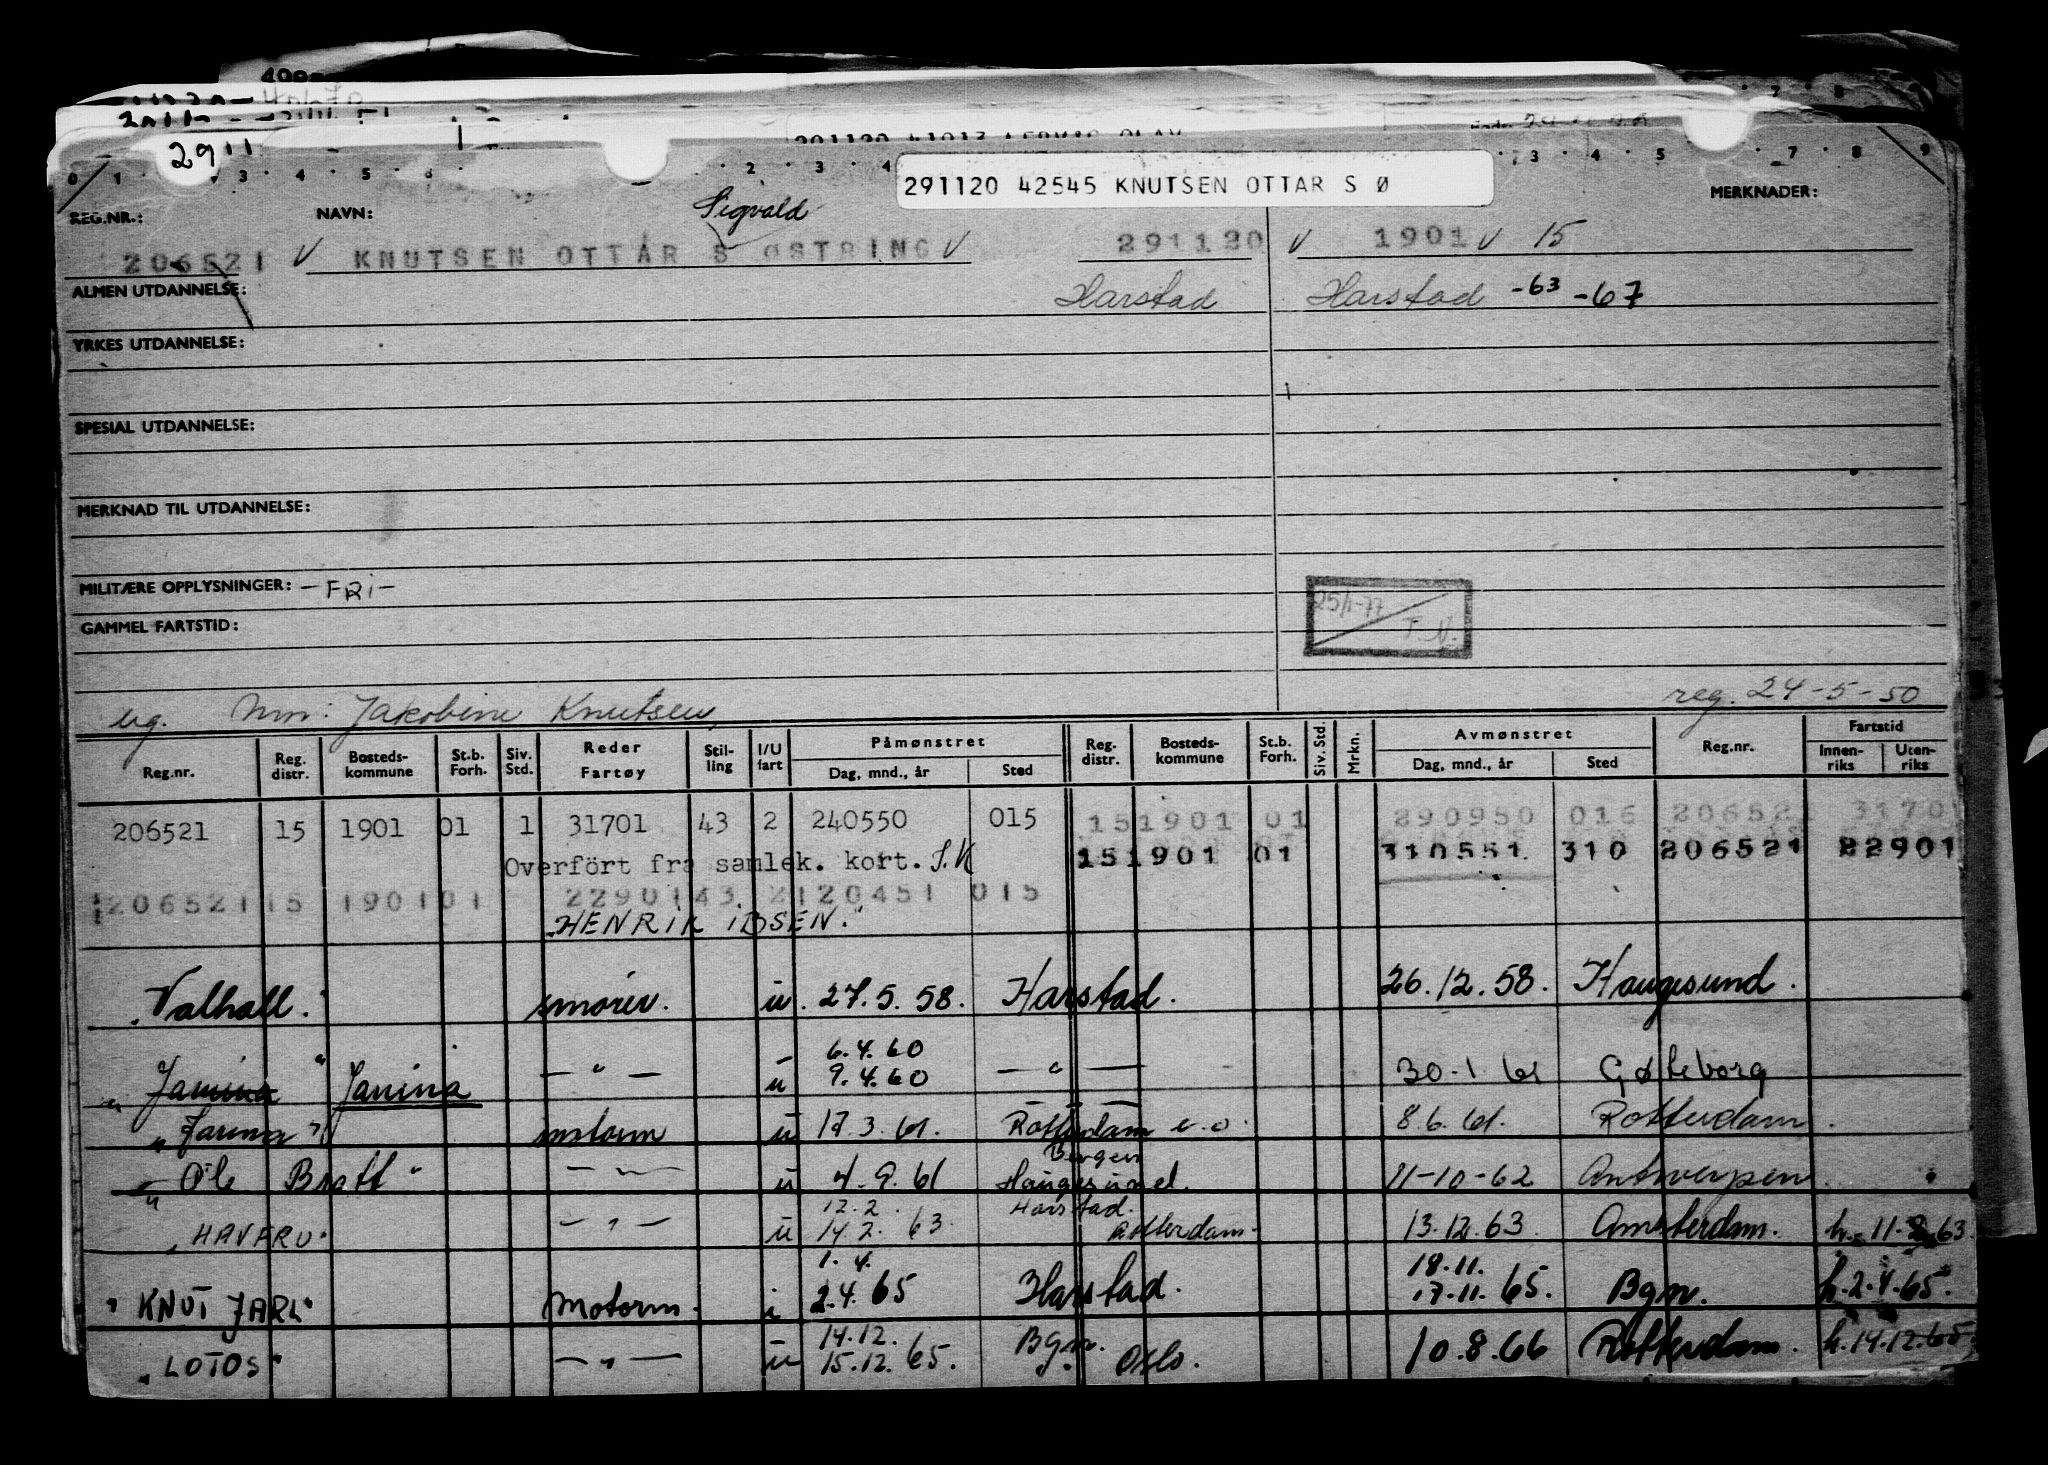 2911
291120 42545 KNUTSEN OTTAR S Ø
MERKNADER:
REG.NR.: NAVN: Sigvald
206521 V KNUTSEN OTTAR S ØSTRING V 291120 V 1901 V 15
ALMEN UTDANNELSE: Harstad Harstad -63 -67
YRKES UTDANNELSE:
SPESIAL UTDANNELSE:
MERKNAD TIL UTDANNELSE:
MILITÆRE OPPLYSNINGER: - FRI -
25/1-77
T.N.
GAMMEL FARTSTID:
ug. Mm: Jakobine Knutsen, reg. 24-5-50
Reg.nr. Reg. distr. Bosteds- kommune St.b. Forh. Siv. Std. Reder Fartøy Stil- ling I/U fart Påmønstret Dag, mnd., år Sted Reg. distr. Bosteds- kommune St.b. Forh. Siv. Std. Mrkn. Avmønstret Dag, mnd., år Sted Reg.nr. Fartstid Innen- riks Uten- riks
206521 15 1901 01 1 31701 43 2 240550 015 151901 01 290950 016 206521 31701
Overført fra samlek. kort. S.K 151901 01 310551 310 206521 22901
206521 15 1901 01 22901 43 2 120451 015
"HENRIK IBSEN."
"Valhall." smører. u. 27.5.58. Harstad. 26.12.58. Haugesund.
6.4.60
"Janina" Janina — " — u 9.4.60 — " — 30.1 61 Gøteborg
"Janina" motorm u 17.3.61. Rotterdam e.o. 8.6.61. Rotterdam.
Bergen
"Ole Bratt" — " — u 4.9.61 Haugesund. 11-10-62 Antwerpen.
12.2. Harstad.
"HAVBRU" — " — u 14.2.63 Rotterdam- 13.12.63. Amsterdam. h. 11.2.63
1.4. 18.11.
"KNUT JARL" Motorm. i 2.4.65 Harstad. 17.11.65. Bgn. h.2.4.65.
14.12. Bgn.
"LOTOS" — " — u 15.12.65. Oslo. 10.8.66 Rotterdam. h.14.12.65